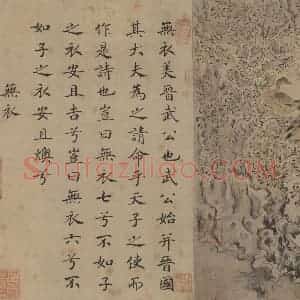 無衣美晉武公也武公始并晉國
其大夫為之請命乎天子之使而
作是詩也豈曰無衣七兮不如子
之衣安且吉兮豈曰無衣六兮不
如子之衣安且燠兮
無衣
Shufaziliao.com